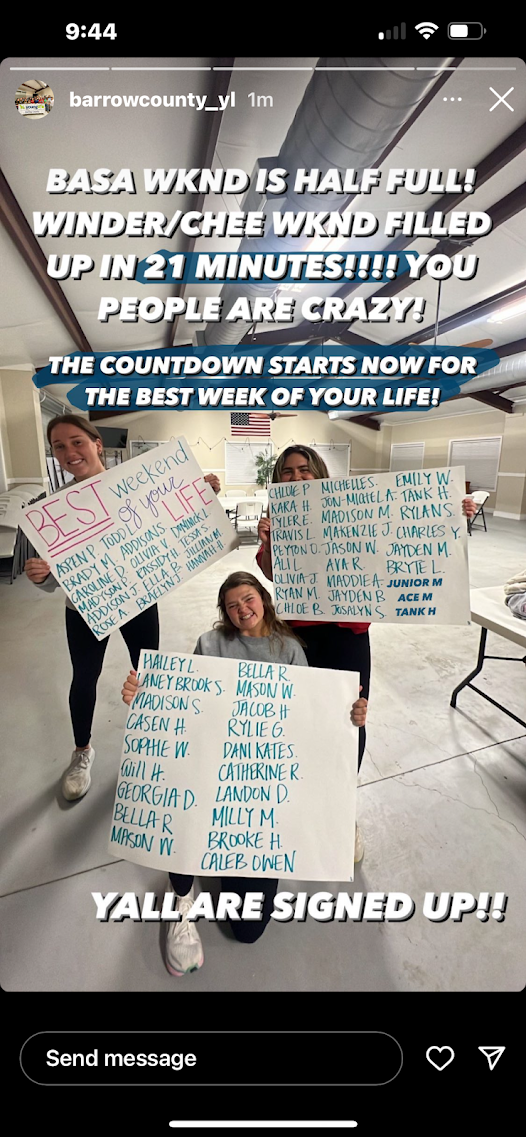 9:44
barrowcounty_yl 1m
BASA WKND IS HALF FULL!
WINDER/CHEE WKND FILLED
UP IN 21 MINUTES!!!! YOU
PEOPLE ARE CRAZY!
THE COUNTDOWN STARTS NOW FOR
THE BEST WEEK OF YOUR LIFE!
BEST weekend
of your
LIFE
ASPEN P. TODD
BRADY M. ADDISON S. DANNIK L.
CAROLINE D. OLIVIA V. TESSA S.
MADISON P. CASSIDY H. JILLIAN M.
ADDISON J. ELLA P. HANNAH H.
ROSE A. BRAELYN J.
CHLOE P. MICHELLE S. EMILY W.
KARA H. JON-MICHEL A. TANK H.
TYLER E. MADISON M. RYLAN S.
TRAVIS L. MAKENZIE J. CHARLES Y.
PEYTON D. JASON W. JAYDEN M.
ALI L. AVA R. BRYTE L.
OLIVIA J. MADDIE A. JUNIOR M
RYAN M. JAYDEN B. ACE M
CHLOE B. JOSALYN S. TANK H
HAILEY L. BELLA R.
LANEY BROOK S. MASON W.
MADISON S. JACOB H
CASEN H. RYLIE G.
SOPHIE W. DANI KATES.
Will H. CATHERINE R.
GEORGIA D. LANDON D.
BELLA R MILLY M.
MASON W. BROOKE H.
CALEB OWEN
YALL ARE SIGNED UP!!
Send message